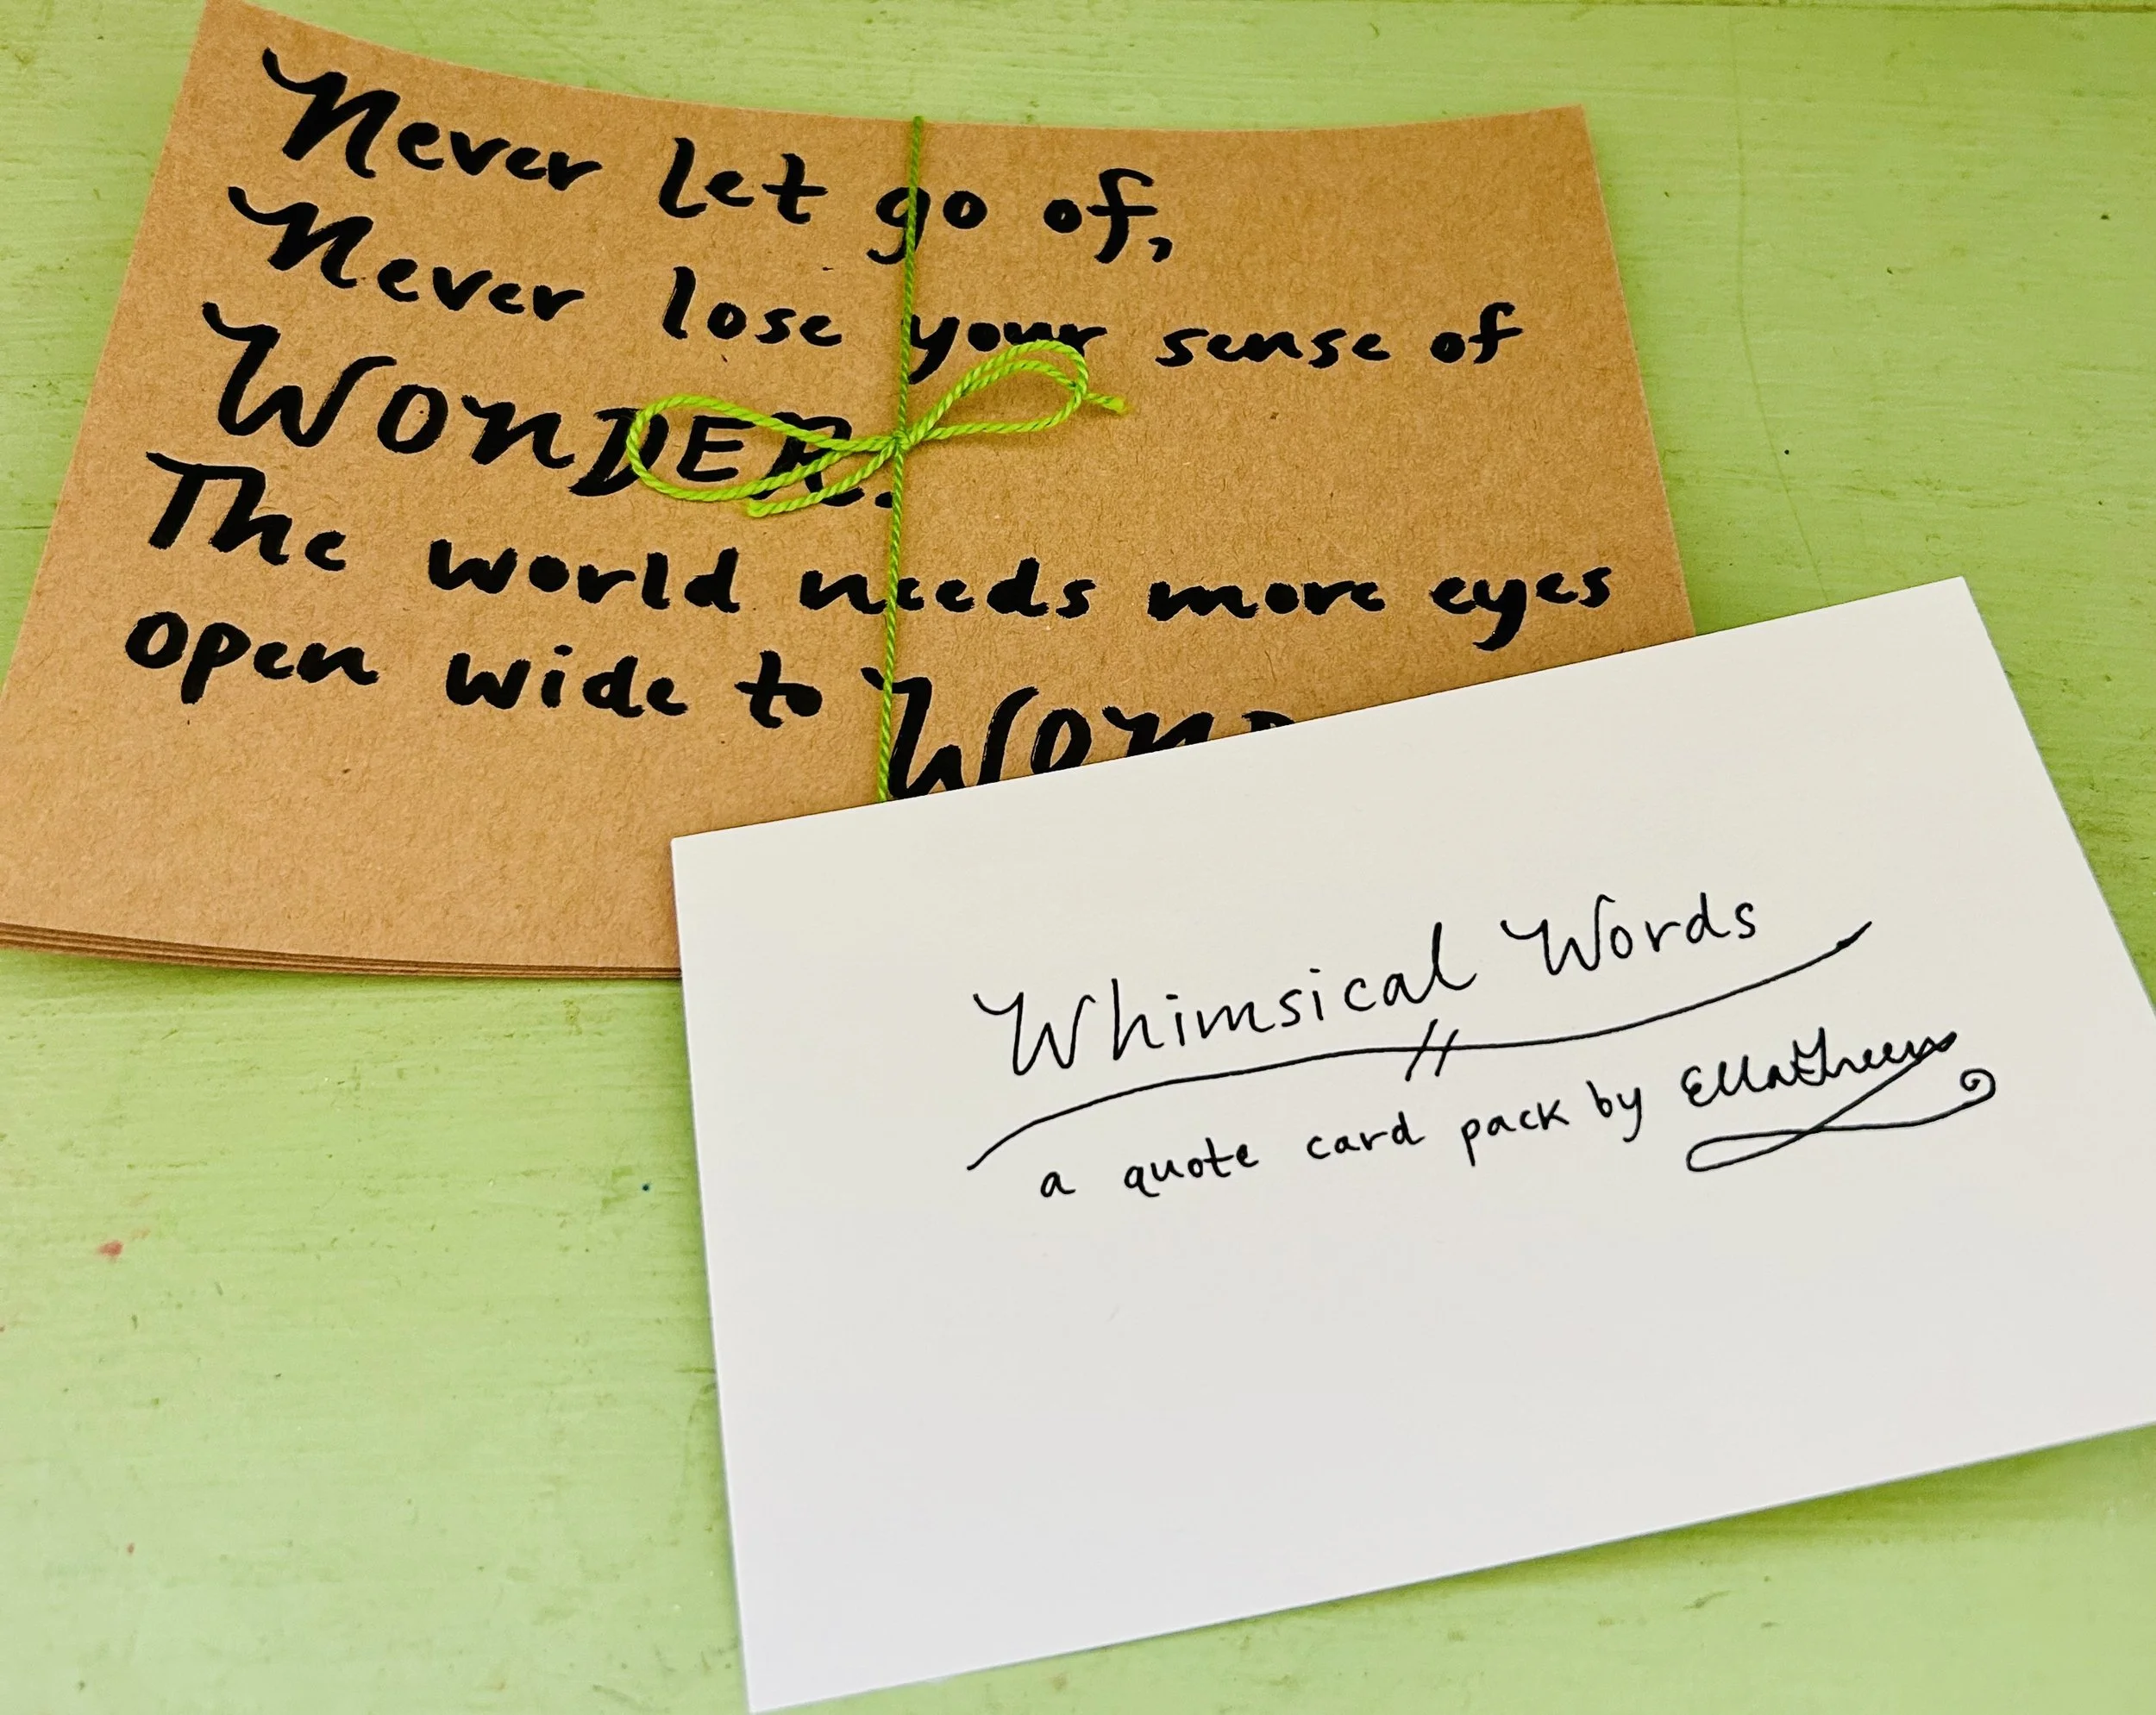 Never let go of,
Never lose your sense of
WONDER.
The world needs more eyes
open wide to WOND
Whimsical Words
a quote card pack by EllaGreen